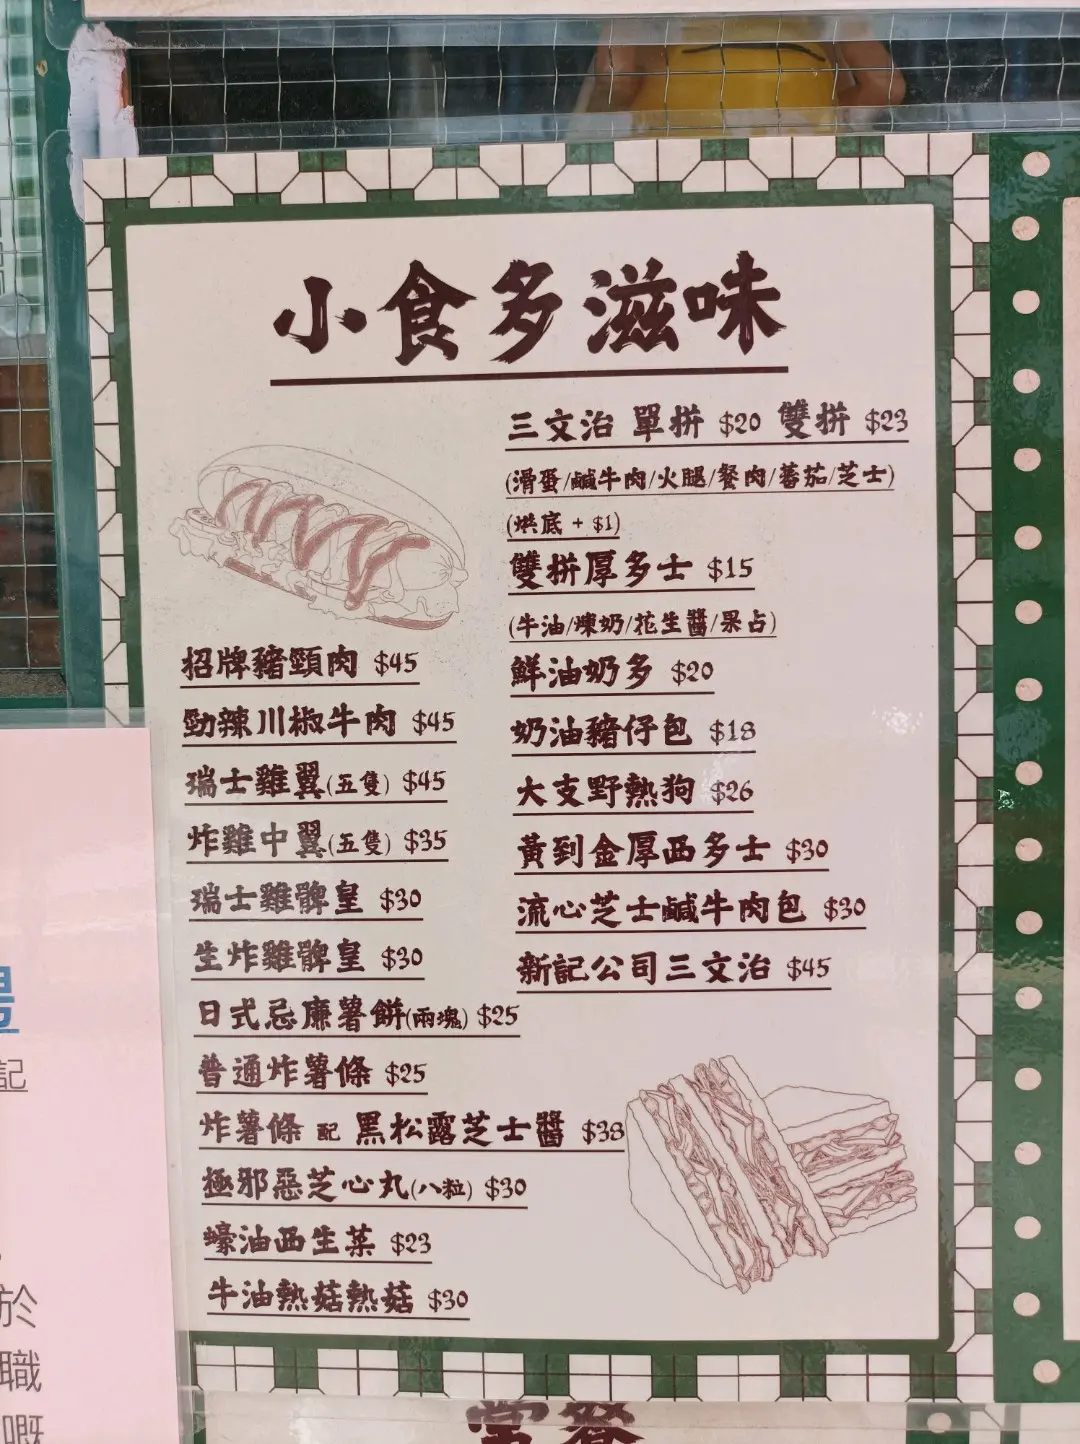 小食多滋味
三文治 單拼 $20 雙拼 $23
(滑蛋/鹹牛肉/火腿/餐肉/蕃茄/芝士)
(烘底 + $1)
雙拼厚多士 $15
(牛油/煉奶/花生醬/果占)
鮮油奶多 $20
奶油豬仔包 $18
大支野熱狗 $26
黃到金厚西多士 $30
流心芝士鹹牛肉包 $30
新記公司三文治 $45
招牌豬頸肉 $45
勁辣川椒牛肉 $45
瑞士雞翼(五隻) $45
炸雞中翼(五隻) $35
瑞士雞髀皇 $30
生炸雞髀皇 $30
日式忌廉薯餅(兩塊) $25
普通炸薯條 $25
炸薯條 配 黑松露芝士醬 $38
極邪惡芝心丸(八粒) $30
蠔油西生菜 $23
牛油熱菇熱菇 $30
記
於
職
嘅
常餐